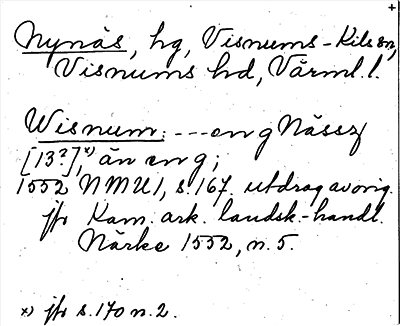 +
Nynäs, hg, Visnums-Kils sn,
Visnums hd, Värml. l.
Wisnum: --- en g Nässz
[13?],ˣ⁾ än en g;
1552 NMU1, s. 167. utdrag av orig.
jfr Kam. ark. landsk.-handl.
Närke 1552, n. 5.
x) jfr s. 170 n. 2.